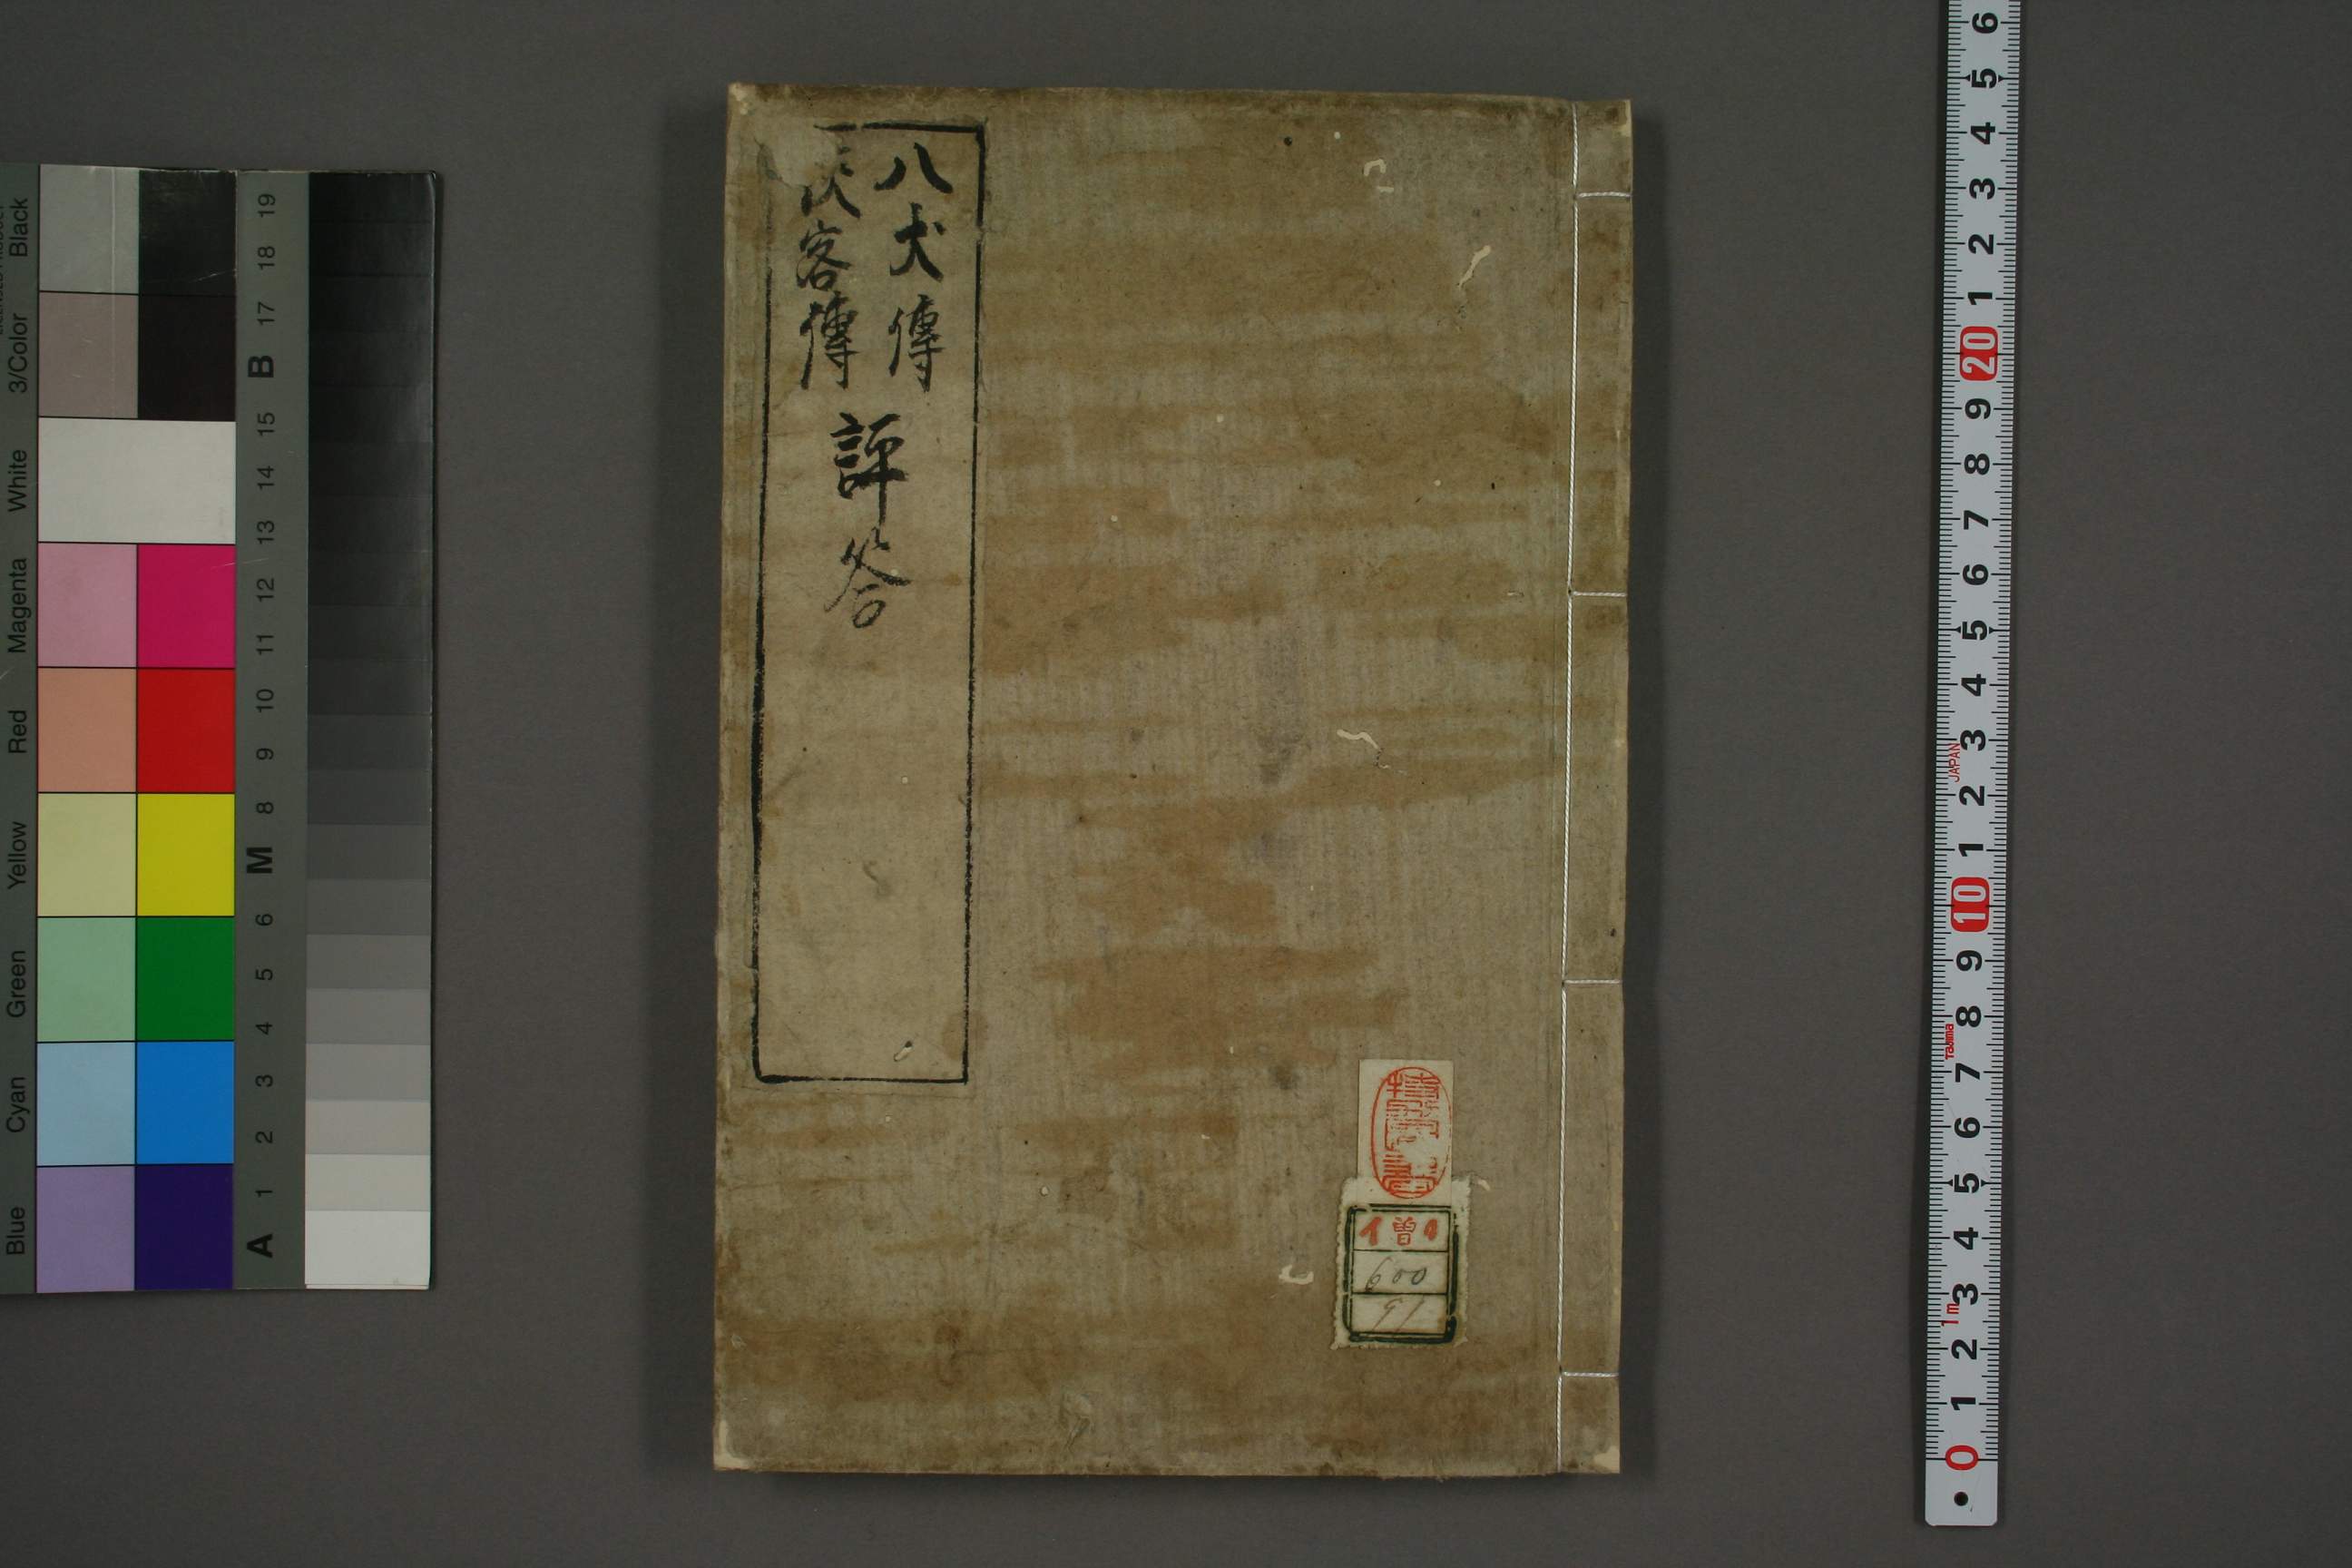 八犬傳
俠客傳
評答
イ曽4
600
91
Black
3/Color
White
Magenta
Red
Yellow
Green
Cyan
Blue
19
18
17
B
15
14
13
12
11
10
9
8
M
6
5
4
3
2
1
A
6
5
4
3
2
1
20
9
8
7
6
5
4
3
JAPAN
2
1
10
9
8
Tajima
7
6
5
4
3
1m
2
1
0